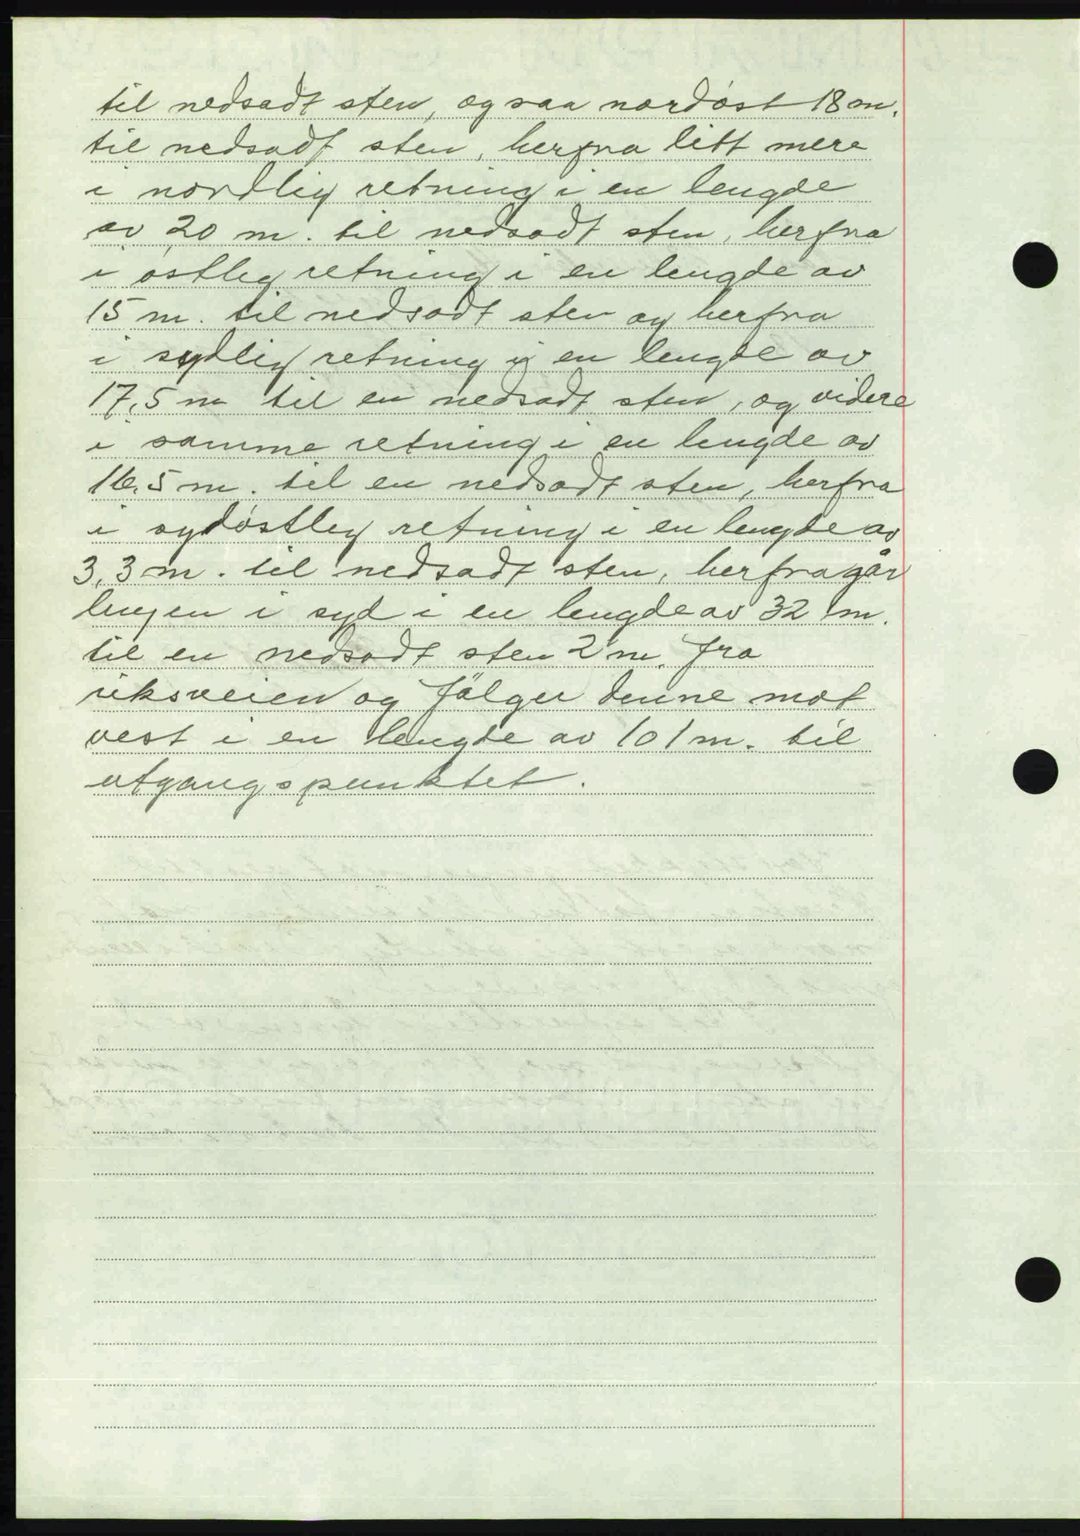 til nedsadt sten, og saa nordøst 18 m.
til nedsadt sten, herfra litt mere
i nordlig retning i en lengde
av 20 m. til nedsadt sten, herfra
i østlig retning i en lengde av
15 m. til nedsadt sten og herfra
i sydlig retning i en lengde av
17,5 m til en nedsadt sten, og videre
i samme retning i en lengde av
16,5 m. til en nedsadt sten, herfra
i sydøstlig retning i en lengde av
3,3 m. til nedsadt sten, herfra går
linjen i syd i en lengde av 32 m.
til en nedsadt sten 2 m. fra
riksveien og følger denne mot
vest i en lengde av 101 m. til
utgangspunktet.